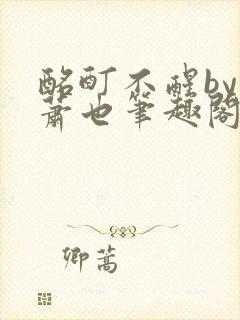 酩酊不醒by
萧也笔趣阁
卿蒿